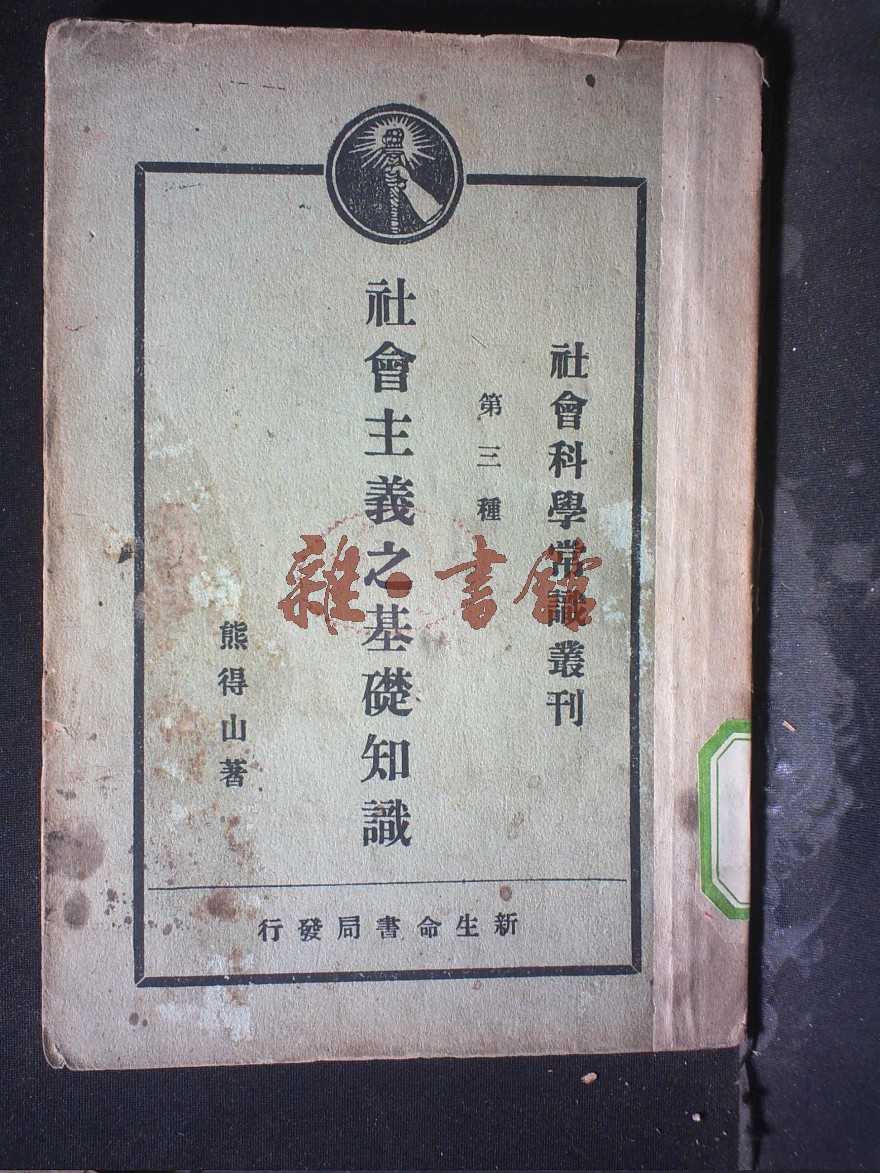 社會科學常識叢刊
第三種
社會主義之基礎知識
熊得山著
新生命書局發行
雜·書館